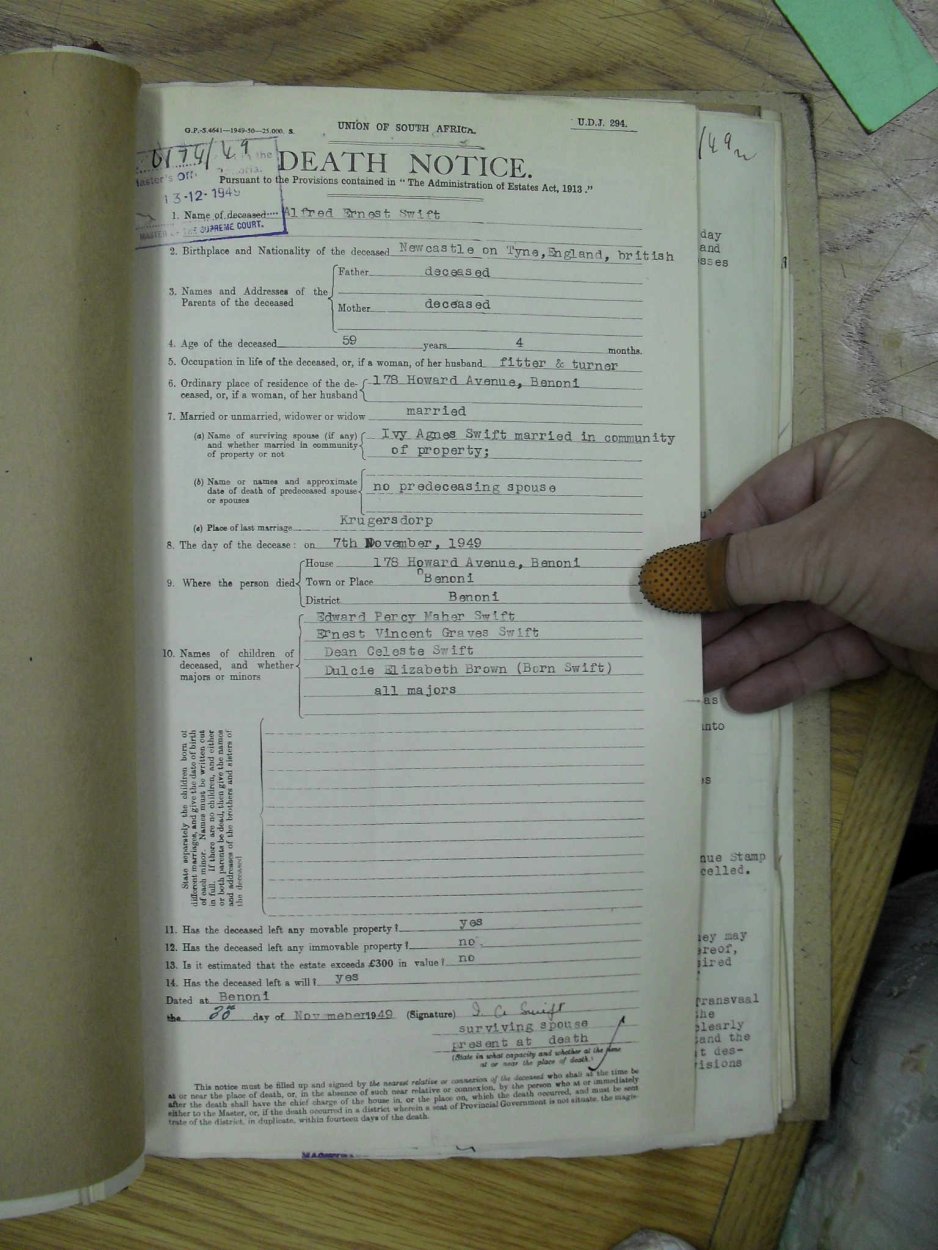 G.P.-S.4641—1949-50—25,000. S.
UNION OF SOUTH AFRICA.
U.D.J. 294.
6174/49
/49
DEATH NOTICE.
Pursuant to the Provisions contained in "The Administration of Estates Act, 1913."
13-12-1949
1. Name of deceased Alfred Ernest Swift
MASTER OF THE SUPREME COURT.
2. Birthplace and Nationality of the deceased Newcastle on Tyne,England, british
3. Names and Addresses of the Parents of the deceased
Father deceased
Mother deceased
4. Age of the deceased 59 years 4 months.
5. Occupation in life of the deceased, or, if a woman, of her husband fitter & turner
6. Ordinary place of residence of the de-
ceased, or, if a woman, of her husband
178 Howard Avenue, Benoni
7. Married or unmarried, widower or widow married
(a) Name of surviving spouse (if any)
and whether married in community
of property or not
Ivy Agnes Swift married in community
of property;
(b) Name or names and approximate
date of death of predeceased spouse
or spouses
no predeceasing spouse
(c) Place of last marriage Krugersdorp
8. The day of the decease: on 7th November, 1949
9. Where the person died
House 178 Howard Avenue, Benoni
Town or Place Benoni
District Benoni
10. Names of children of
deceased, and whether
majors or minors
Edward Percy Maher Swift
Ernest Vincent Graves Swift
Dean Celeste Swift
Dulcie Elizabeth Brown (Born Swift)
all majors
State separately the children born of
different marriages, and give the date of birth
of each minor. Names must be written out
in full. If there are no children, and either
or both parents be dead, then give the names
and addresses of the brothers and sisters of
the deceased
11. Has the deceased left any movable property? yes
12. Has the deceased left any immovable property? no
13. Is it estimated that the estate exceeds £300 in value? no
14. Has the deceased left a will? yes
Dated at Benoni
the day of Novmeber1949 (Signature) I A Swift
surviving spouse
present at death
(State in what capacity and whether at the time
at or near the place of death.)
This notice must be filled up and signed by the nearest relative or connexion of the deceased who shall at the time be
at or near the place of death, or, in the absence of such near relative or connexion, by the person who at or immediately
after the death shall have the chief charge of the house in, or the place on, which the death occurred, and must be sent
either to the Master, or, if the death occurred in a district wherein a seat of Provincial Government is not situate, the magis-
trate of the district, in duplicate, within fourteen days of the death.
day
and
sses
as
nto
s
nue Stamp
celled.
ey may
ereof,
ired
Transvaal
he
clearly
and the
t des-
isions